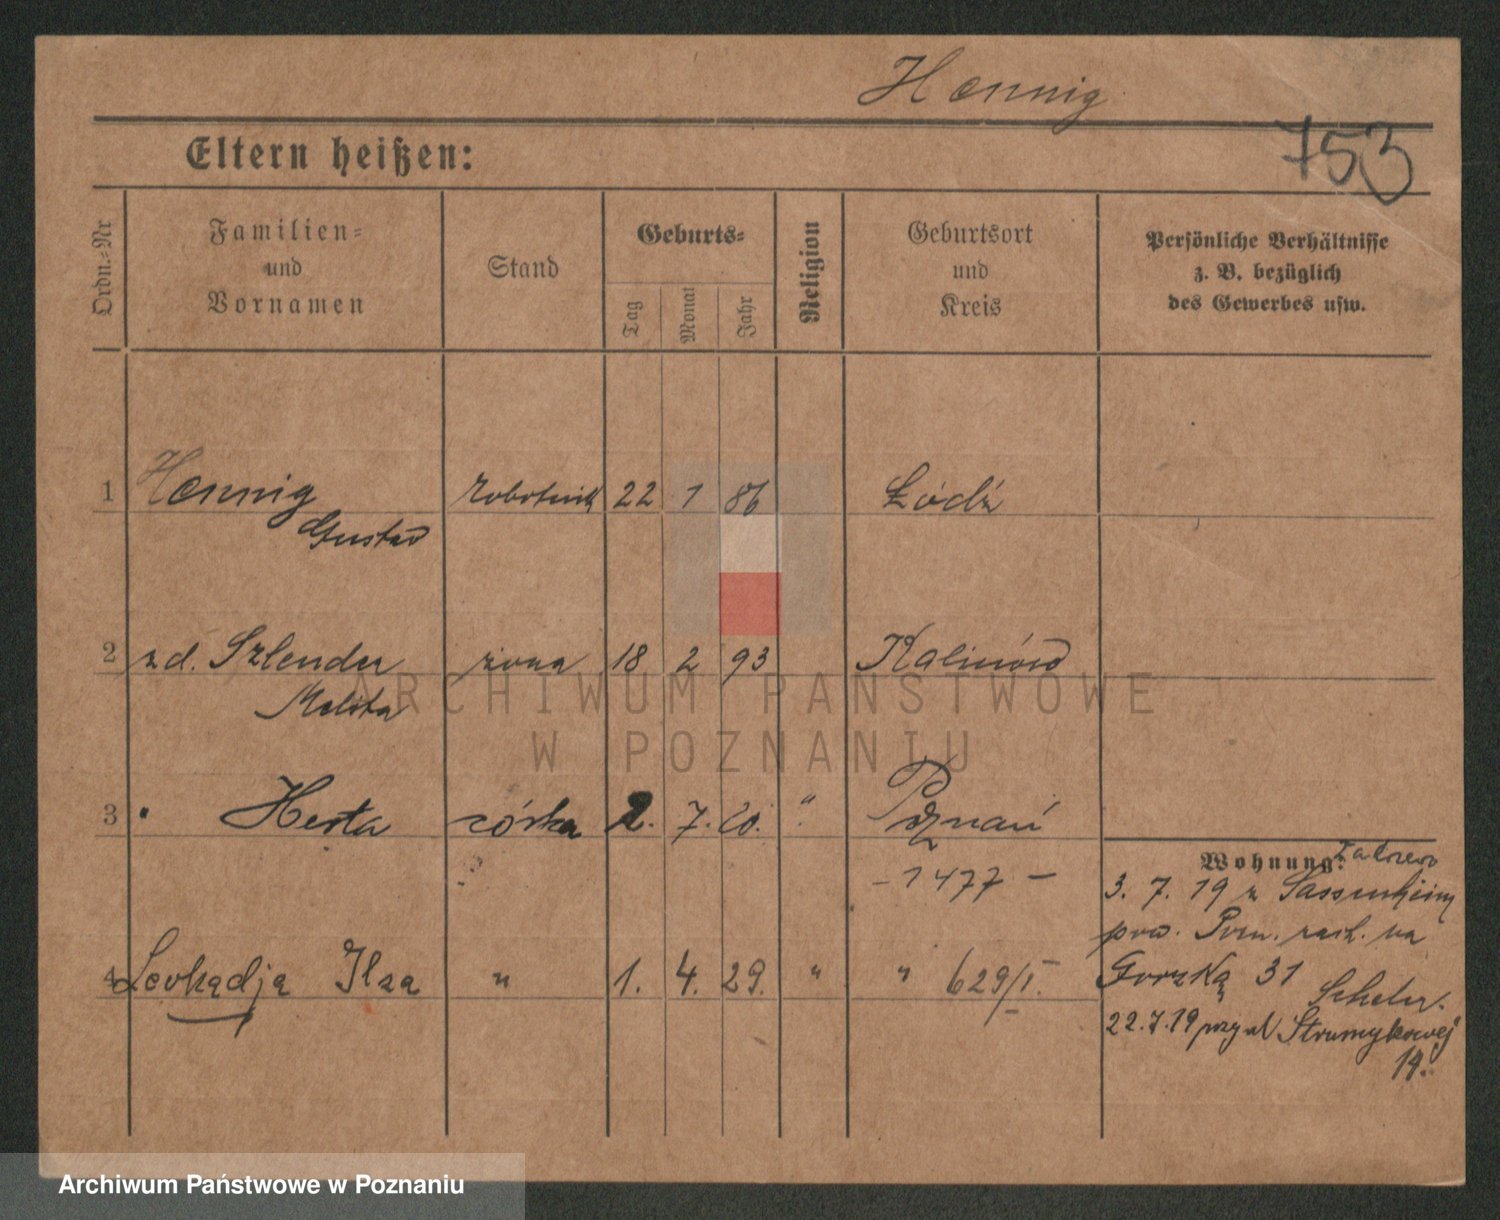 Hennig
753
Eltern heißen:
Ordn.-Nr
Familien-
und
Vornamen
Stand
Geburts-
Tag
Monat
Jahr
Religion
Geburtsort
und
Kreis
Persönliche Verhältnisse
z. B. bezüglich
des Gewerbes usw.
1 Hennig robotnik 22 1 86 Łódź
Gustav
2 zd. Szlender żona 18 2 93 Kalinów
Melita
3 " Herta córka 2. 7. 20. " Poznań
- 1477 -
4 Leokadja Ilza " 1. 4. 29. " " 629/I.
Wohnung:
3. 7. 19 z Sassenheim
pow. zach. na
31
22.7.19 przy ul Strumykowej
19.
ARCHIWUM PAŃSTWOWE
W POZNANIU
Archiwum Państwowe w Poznaniu